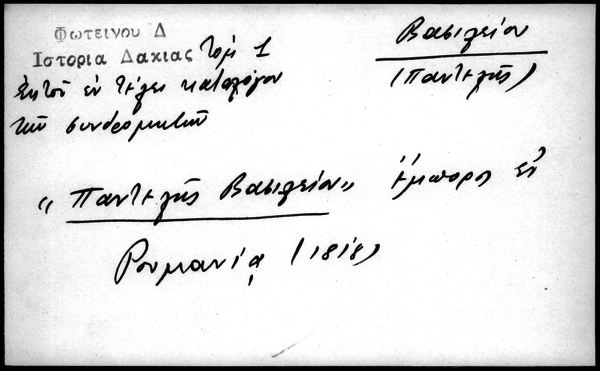 Φωτεινου Δ
Ιστορια Δακιας Τομ 1
Εκ τοῦ ἐν τέλει καταλόγου
τῶν συνδρομητῶν
Βασιλείου
(Παντελῆς)
«Παντελῆς Βασιλείου» ἔμπορος ἐν
Ρουμανίᾳ (1818)